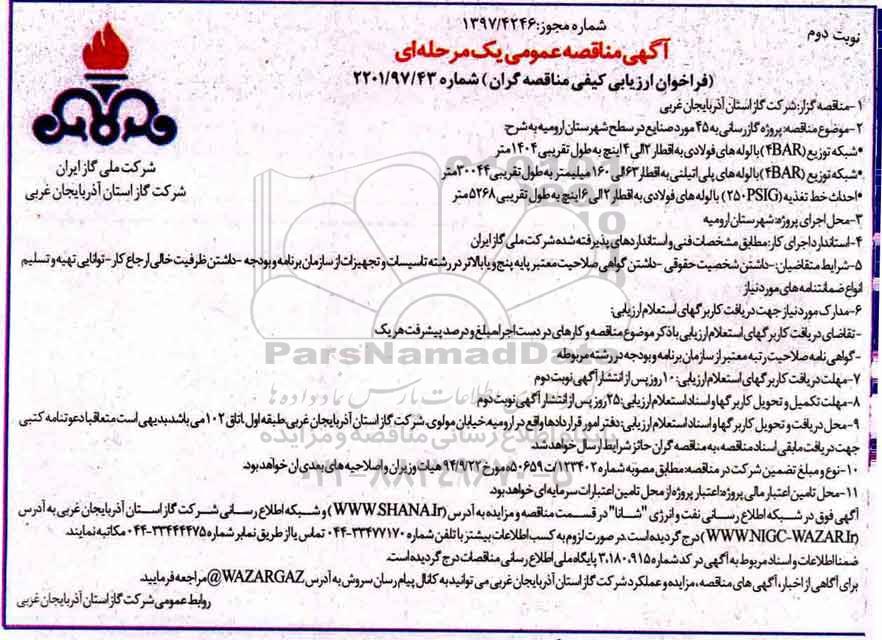 شماره مجوز: ۱۳۹۷/۴۲۴۶
نوبت دوم
آگهی مناقصه عمومی یک مرحله‌ای
(فراخوان ارزیابی کیفی مناقصه گران) شماره ۲۲۰۱/۹۷/۴۳
شرکت ملی گاز ایران
شرکت گاز استان آذربایجان غربی
۱-مناقصه گزار: شرکت گاز استان آذربایجان غربی
۲-موضوع مناقصه: پروژه گازرسانی به ۴۵ مورد صنایع در سطح شهرستان ارومیه به شرح:
*شبکه توزیع (۴BAR) با لوله های فولادی به اقطار ۲ الی ۴ اینچ به طول تقریبی ۱۴۰۴ متر
*شبکه توزیع (۴BAR) با لوله های پلی اتیلنی به اقطار ۶۳ الی ۱۶۰ میلیمتر به طول تقریبی ۳۰۰۴۴ متر
*احداث خط تغذیه (۲۵۰PSIG) با لوله های فولادی به اقطار ۲ الی ۶ اینچ به طول تقریبی ۵۲۶۸ متر
۳-محل اجرای پروژه: شهرستان ارومیه
۴-استاندارد اجرای کار: مطابق مشخصات فنی و استانداردهای پذیرفته شده شرکت ملی گاز ایران
۵-شرایط متقاضیان: -داشتن شخصیت حقوقی -داشتن گواهی صلاحیت معتبر پایه پنج و یا بالاتر در رشته تاسیسات و تجهیزات از سازمان برنامه و بودجه -داشتن ظرفیت خالی ارجاع کار -توانایی تهیه و تسلیم
انواع ضمانتنامه های مورد نیاز
۶-مدارک مورد نیاز جهت دریافت کاربرگهای استعلام ارزیابی:
-تقاضای دریافت کاربرگهای استعلام ارزیابی با ذکر موضوع مناقصه و کارهای در دست اجرا مبلغ و درصد پیشرفت هر یک
-گواهی نامه صلاحیت رتبه معتبر از سازمان برنامه و بودجه در رشته مربوطه
۷-مهلت دریافت کاربرگهای استعلام ارزیابی: ۱۰ روز پس از انتشار آگهی نوبت دوم
۸-مهلت تکمیل و تحویل کاربرگها و اسناد استعلام ارزیابی: ۲۵ روز پس از انتشار آگهی نوبت دوم
۹-محل دریافت و تحویل کاربرگها و اسناد استعلام ارزیابی: دفتر امور قراردادها واقع در ارومیه خیابان مولوی، شرکت گاز استان آذربایجان غربی، طبقه اول، اتاق ۱۰۲ می باشد. بدیهی است متعاقبا دعوتنامه کتبی
جهت دریافت مابقی اسناد مناقصه، به مناقصه گران حائز شرایط ارسال خواهد شد.
۱۰-نوع و مبلغ تضمین شرکت در مناقصه مطابق مصوبه شماره ۱۲۳۴۰۲/ت۵۰۶۵۹ه مورخ ۹۴/۹/۲۲ هیات وزیران و اصلاحیه های بعدی آن خواهد بود.
۱۱-محل تامین اعتبار مالی پروژه: اعتبار پروژه از محل تامین اعتبارات سرمایه ای خواهد بود.
آگهی فوق در شبکه اطلاع رسانی نفت و انرژی "شانا" در قسمت مناقصه و مزایده به آدرس (WWW.SHANA.Ir) و شبکه اطلاع رسانی شرکت گاز استان آذربایجان غربی به آدرس
(WWW.NIGC-WAZAR.Ir) درج گردیده است. در صورت لزوم به کسب اطلاعات بیشتر با تلفن شماره ۳۳۴۷۷۱۷۰-۰۴۴ تماس یا از طریق نمابر شماره ۳۳۴۴۴۴۷۵-۰۴۴ مکاتبه نمایند.
ضمنا اطلاعات و اسناد مربوط به آگهی در کد شماره ۳،۱۸۰،۹۱۵ پایگاه ملی اطلاع رسانی مناقصات درج گردیده است.
برای آگاهی از اخبار، آگهی های مناقصه، مزایده و عملکرد شرکت گاز استان آذربایجان غربی می توانید به کانال پیام رسان سروش به آدرس WAZARGAZ@ مراجعه فرمایید.
روابط عمومی شرکت گاز استان آذربایجان غربی
ParsNamadData